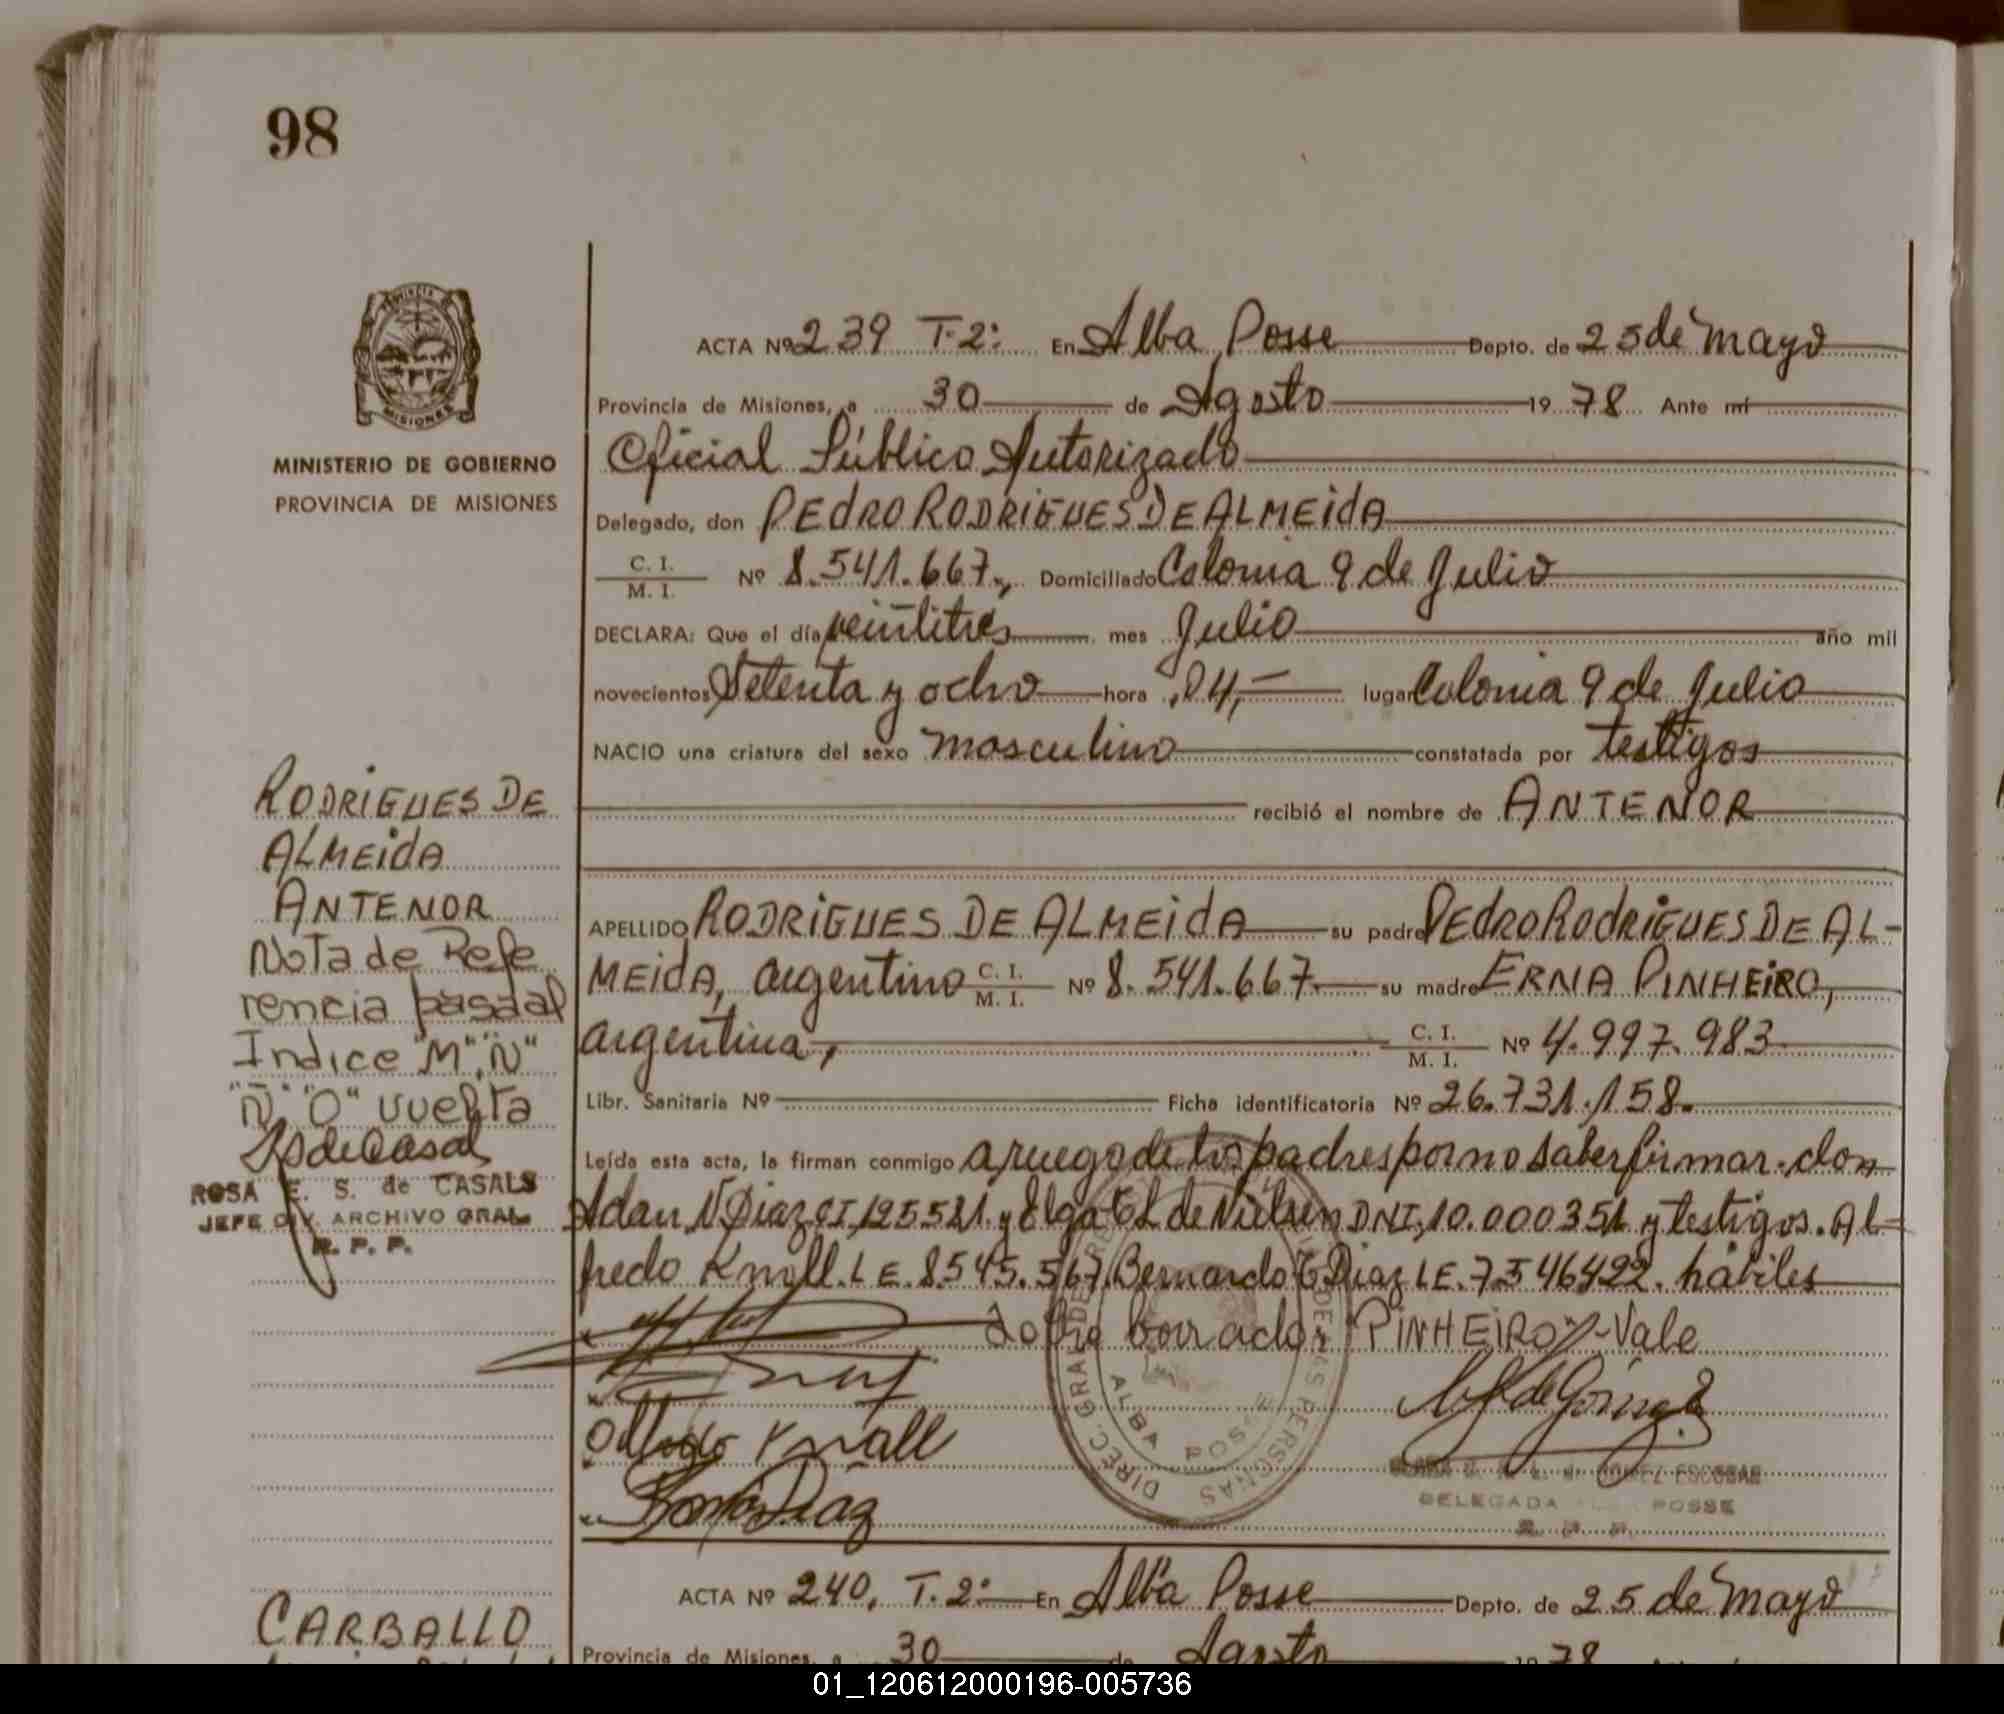 98
PROVINCIA DE
MISIONES
MINISTERIO DE GOBIERNO
PROVINCIA DE MISIONES
ACTA Nº 239 T-2: En Alba Posse Depto. de 25 de Mayo
Provincia de Misiones, a 30 de Agosto 19 78 Ante mí
Oficial Público Autorizado
Delegado, don PEDRO RODRIGUES DE ALMEIDA
C. I. / M. I. Nº 8.541.667., Domiciliado Colonia 9 de Julio
DECLARA: Que el día veintitres mes Julio año mil
novecientos Setenta y ocho hora 04,- lugar Colonia 9 de Julio
NACIO una criatura del sexo masculino constatada por testigos
recibió el nombre de ANTENOR
APELLIDO RODRIGUES DE ALMEIDA su padre PEDRO RODRIGUES DE AL-
MEIDA, argentino C. I. / M. I. Nº 8.541.667 su madre ERNA PINHEIRO,
argentina, C. I. / M. I. Nº 4.997.983
Libr. Sanitaria Nº Ficha identificatoria Nº 26.731.158.
Leída esta acta, la firman conmigo a ruego de los padres por no saber firmar. don
Adan N Diaz CI, 125521 y Elga de Nielsen DNI, 10.000351 y testigos. Al=
fredo Knoll. L E. 8.545.567, Bernardo Diaz LE. 7.546422. hábiles
Sobre borrador: "PINHEIRO"-Vale
Knall
Diaz
de Gómez
GOMEZ ESCOBAR
DELEGADA POSSE
R. P. P.
DIREC. GRAL. DE DE LAS PERSONAS
ALBA POSSE
RODRIGUES DE
ALMEIDA
ANTENOR
Nota de Refe
rencia pasa al
Indice "M", "N"
"Ñ" "O" vuelta
ROSA E. S. de CASALS
JEFE DIV. ARCHIVO GRAL.
R. P. P.
ACTA Nº 240. T.2: En Alba Posse Depto. de 25 de Mayo
CARBALLO
Provincia de Misiones, a 30 de Agosto 19 78
01_120612000196-005736